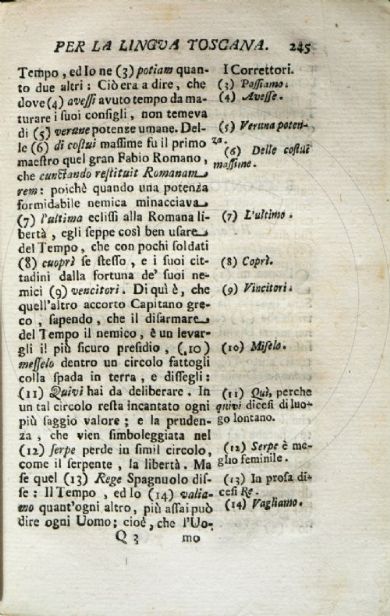 PER LA LINGVA TOSCANA. 245
Tempo, ed Io ne (3) potiam quan-
to due altri: Ciò era a dire, che
dove (4) avessi avuto tempo da ma-
turare i suoi consigli, non temeva
di (5) verune potenze umane. Del-
le (6) di costui massime fu il primo
maestro quel gran Fabio Romano,
che cunctando restituit Romanam
rem: poichè quando una potenza
formidabile nemica minacciava
(7) l'ultima eclissi alla Romana li-
bertà, egli seppe così ben usare
del Tempo, che con pochi soldati
(8) cuoprì se stesso, e i suoi cit-
tadini dalla fortuna de' suoi ne-
mici (9) vencitori. Di quì è, che
quell'altro accorto Capitano gre-
co, sapendo, che il disarmare
del Tempo il nemico, è un levar-
gli il più sicuro presidio, (10)
messelo dentro un circolo fattogli
colla spada in terra, e dissegli:
(11) Quivi hai da deliberare. In
un tal circolo resta incantato ogni
più saggio valore; e la pruden-
za, che vien simboleggiata nel
(12) serpe perde in simil circolo,
come il serpente, la libertà. Ma
se quel (13) Rege Spagnuolo dis-
se: Il Tempo, ed Io (14) valia-
mo quant'ogni altro, più assai può
dire ogni Uomo; cioè, che l'Uo-
Q 3 mo
I Correttori.
(3) Possiamo.
(4) Avesse.
(5) Veruna poten-
za.
(6) Delle costui
massime.
(7) L'ultimo.
(8) Coprì.
(9) Vincitori.
(10) Miselo.
(11) Quì, perche
quivi dicesi di luo-
go lontano.
(12) Serpe è me-
glio feminile.
(13) In prosa di-
cesi Re.
(14) Vagliamo.